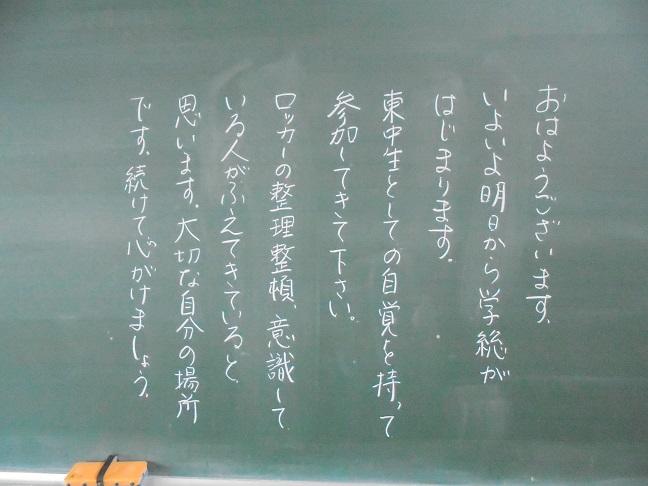 おはようございます。
いよいよ明日から学総が
はじまります。
東中生としての自覚を持って
参加してきて下さい。
ロッカーの整理整頓、意識して
いる人がふえてきていると
思います。大切な自分の場所
です。続けて心がけましょう。